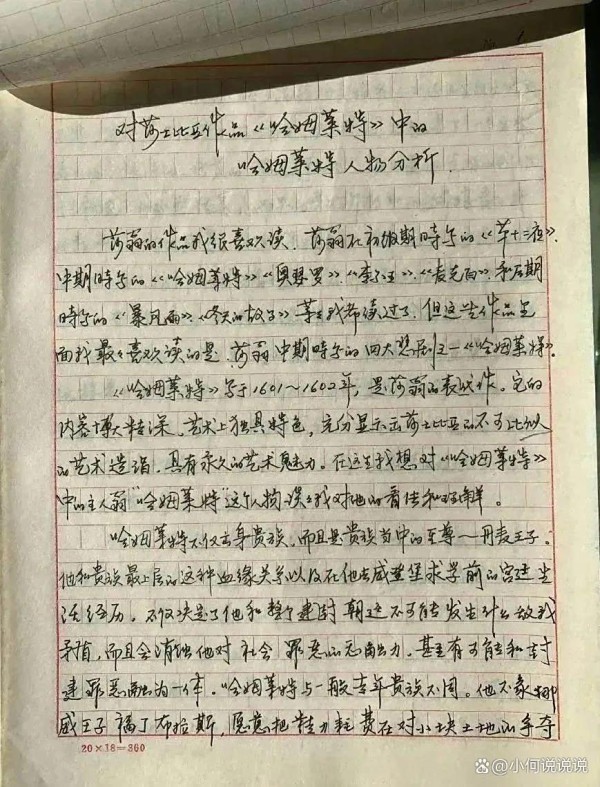 对莎士比亚作品《哈姆莱特》中的
哈姆莱特人物分析.
莎翁的作品我很喜欢读. 莎翁在初级期时写的《第十二夜》.
中期时写的《哈姆莱特》《奥瑟罗》.《李尔王》.《麦克白》.和后期
时写的《暴风雨》.《冬天的故事》等等我都读过了. 但这些作品里
面我最最喜欢读的是.莎翁中期时写的四大悲剧之一《哈姆莱特》.
《哈姆莱特》写于1601～1602年，是莎翁的代表作. 它的
内容博大精深. 艺术上独具特色，充分显示出莎士比亚的不可比拟
的艺术造诣. 具有永久的艺术魅力. 在这里我想对《哈姆莱特》
中的主人翁“哈姆莱特”这个人物谈谈我对他的看法和理解。
哈姆莱特不仅出身贵族. 而且是贵族当中的至尊—丹麦王子。
他和贵族最上层的这种血缘关系以及在他去威登堡求学前的宫廷生
活经历. 不仅决定了他和整个封建朝廷不可能发生什么敌我
矛盾，而且会消蚀他对社会罪恶的 能力. 甚至有可能和封
建罪恶融为一体. 哈姆莱特与一般青年贵族不同。他不象挪
威王子福丁布拉斯，愿意把精力耗费在对小块土地的争夺
20×18=360
小何说说说